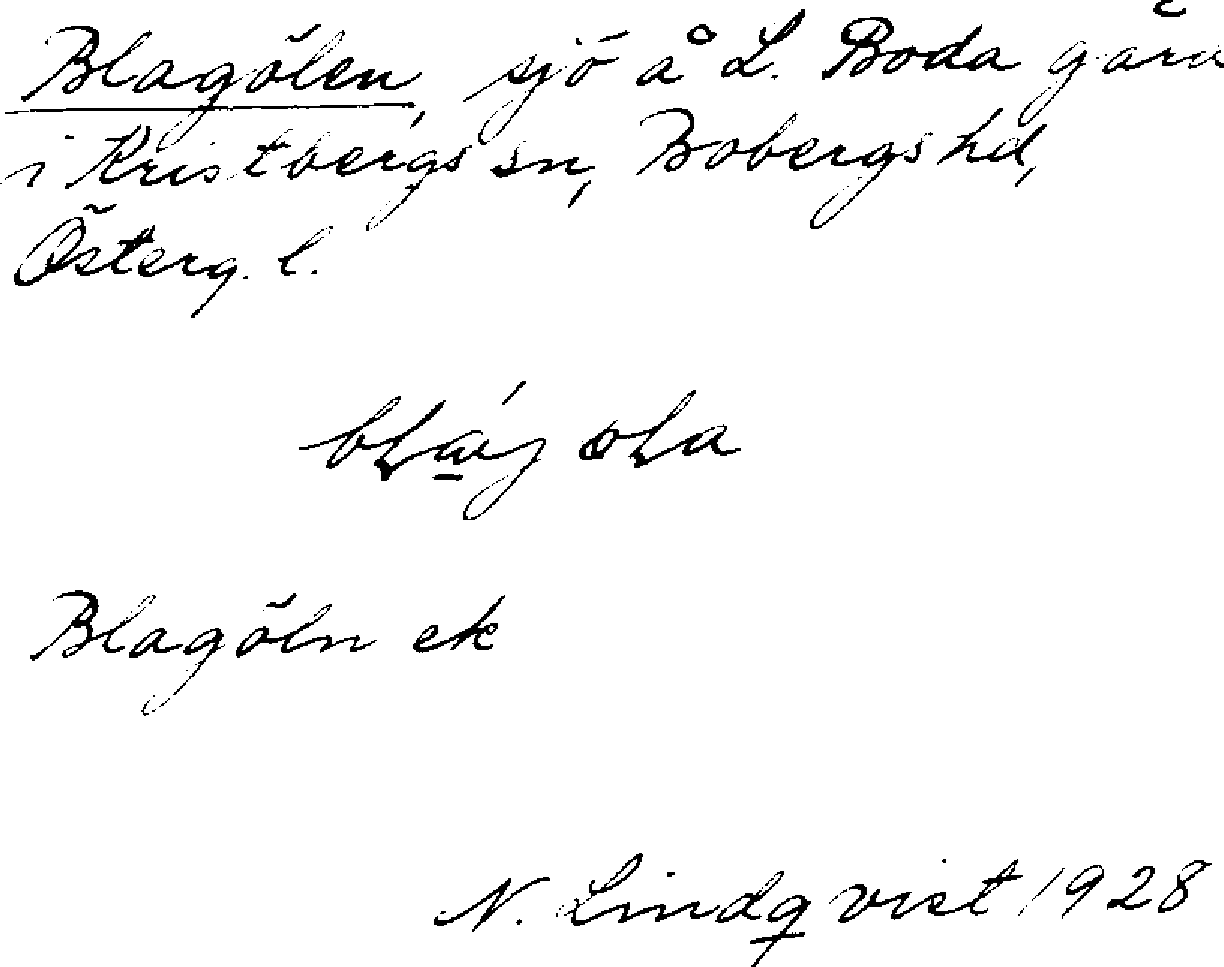 Blagölen, sjö å L. Boda
i Kristbergs sn, Bobergs hd,
Österg. l.
Blagöln ek
N. Lindqvist 1928